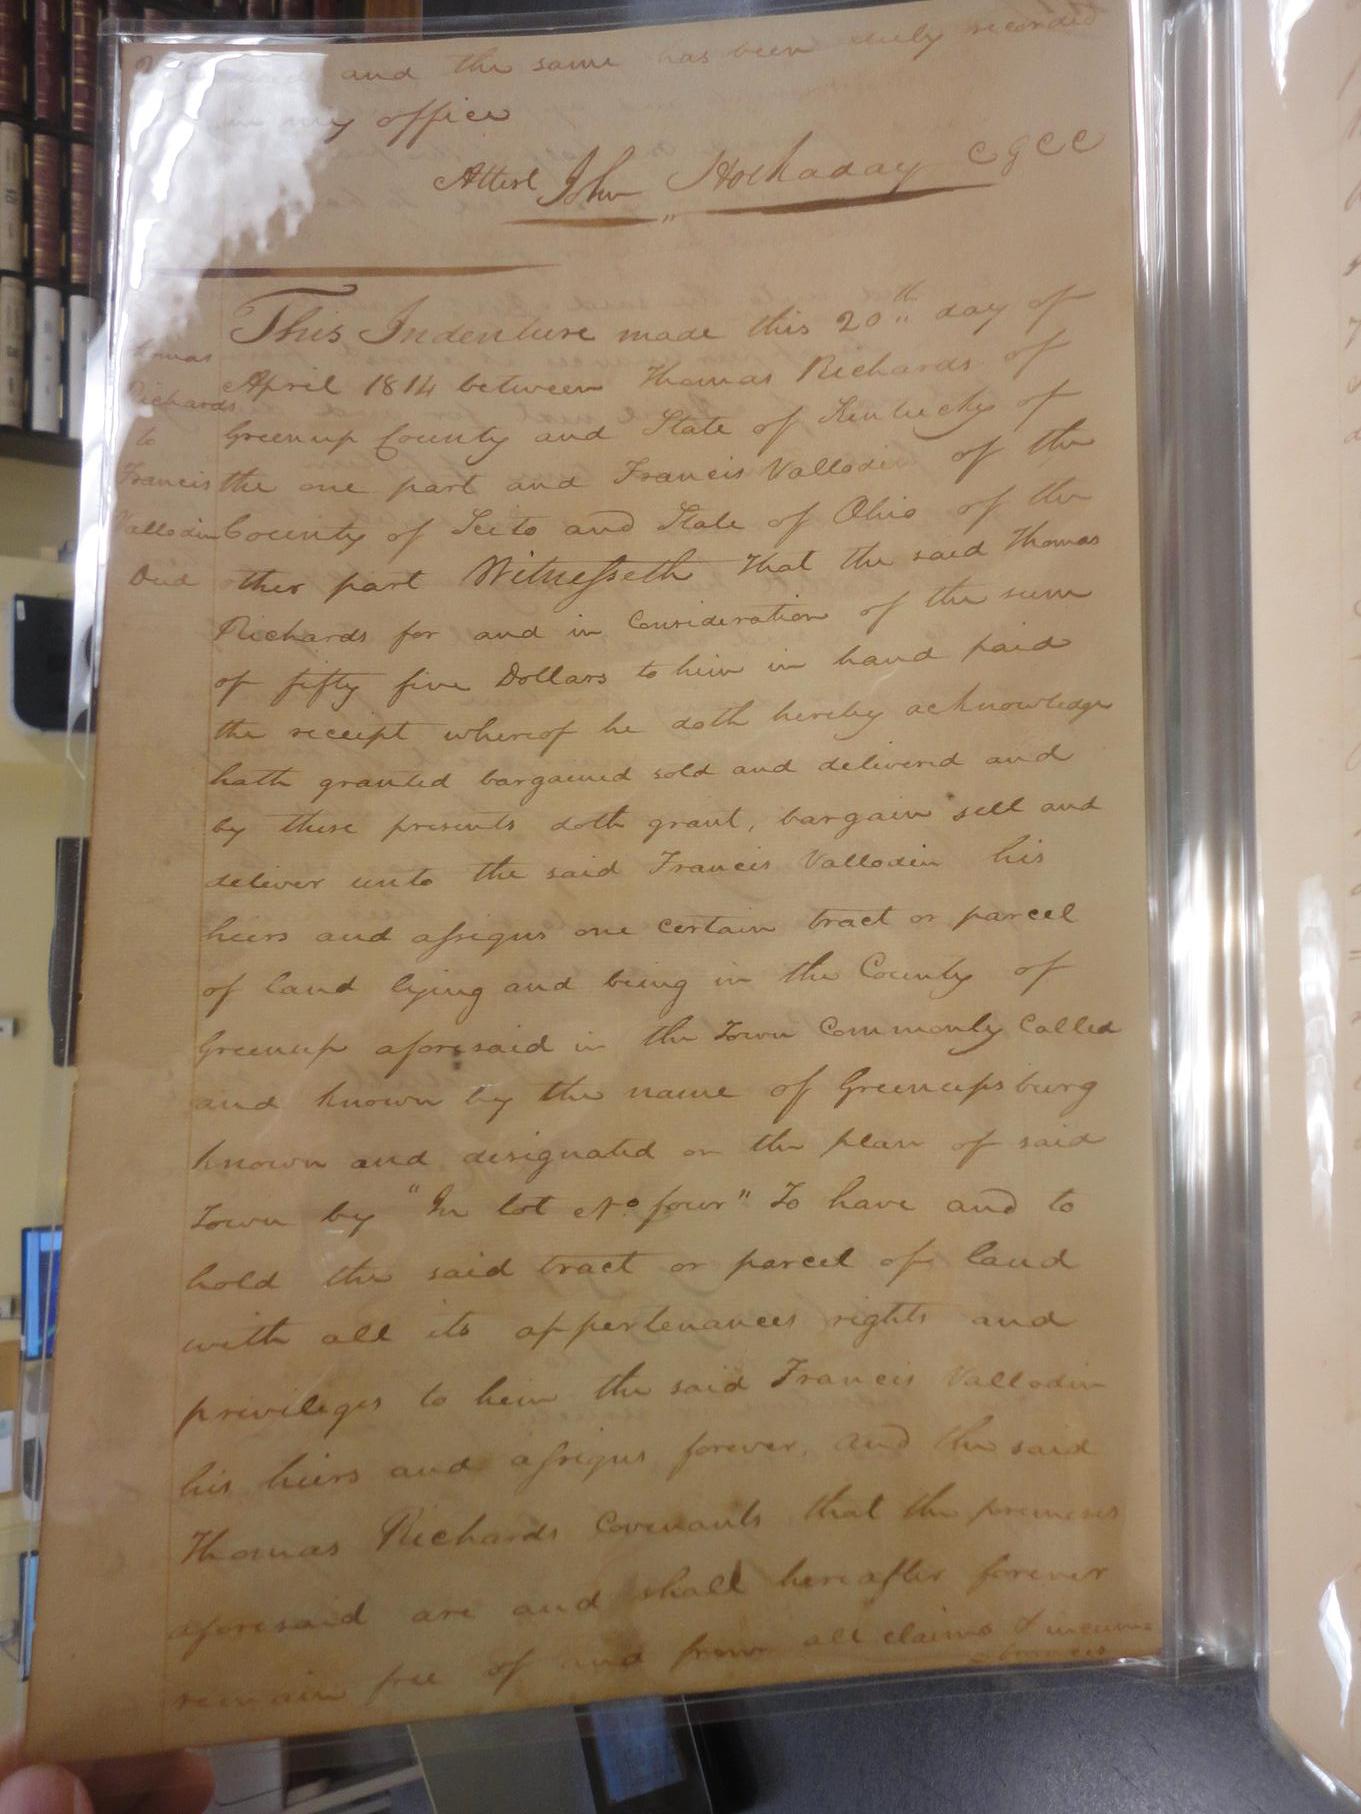 and the same has been duly recorded
in my office
Attest John Hockaday C G C C
This Indenture made this 20th day of
April 1814 between Thomas Richards of
Greenup County and State of Kentucky of
the one part and Francis Vallodin of the
County of Scito and State of Ohio of the
other part Witnesseth That the said Thomas
Richards for and in Consideration of the sum
of fifty five Dollars to him in hand paid
the receipt whereof he doth hereby acknowledge
hath granted bargained sold and delivered and
by these presents doth grant, bargain sell and
deliver unto the said Francis Vallodin his
heirs and assigns one certain tract or parcel
of land lying and being in the County of
Greenup aforesaid in the Town Commonly Called
and known by the name of Greenupsburg
known and designated on the plan of said
Town by "In lot No four" To have and to
hold the said tract or parcel of land
with all its appertenances rights and
privileges to him the said Francis Vallodin
his heirs and assigns forever, and the said
Thomas Richards Covenants that the premises
aforesaid are and shall hereafter forever
remain free of and from all claims & incum=
=brances
Thomas
Richards
to
Francis
Vallodin
Deed